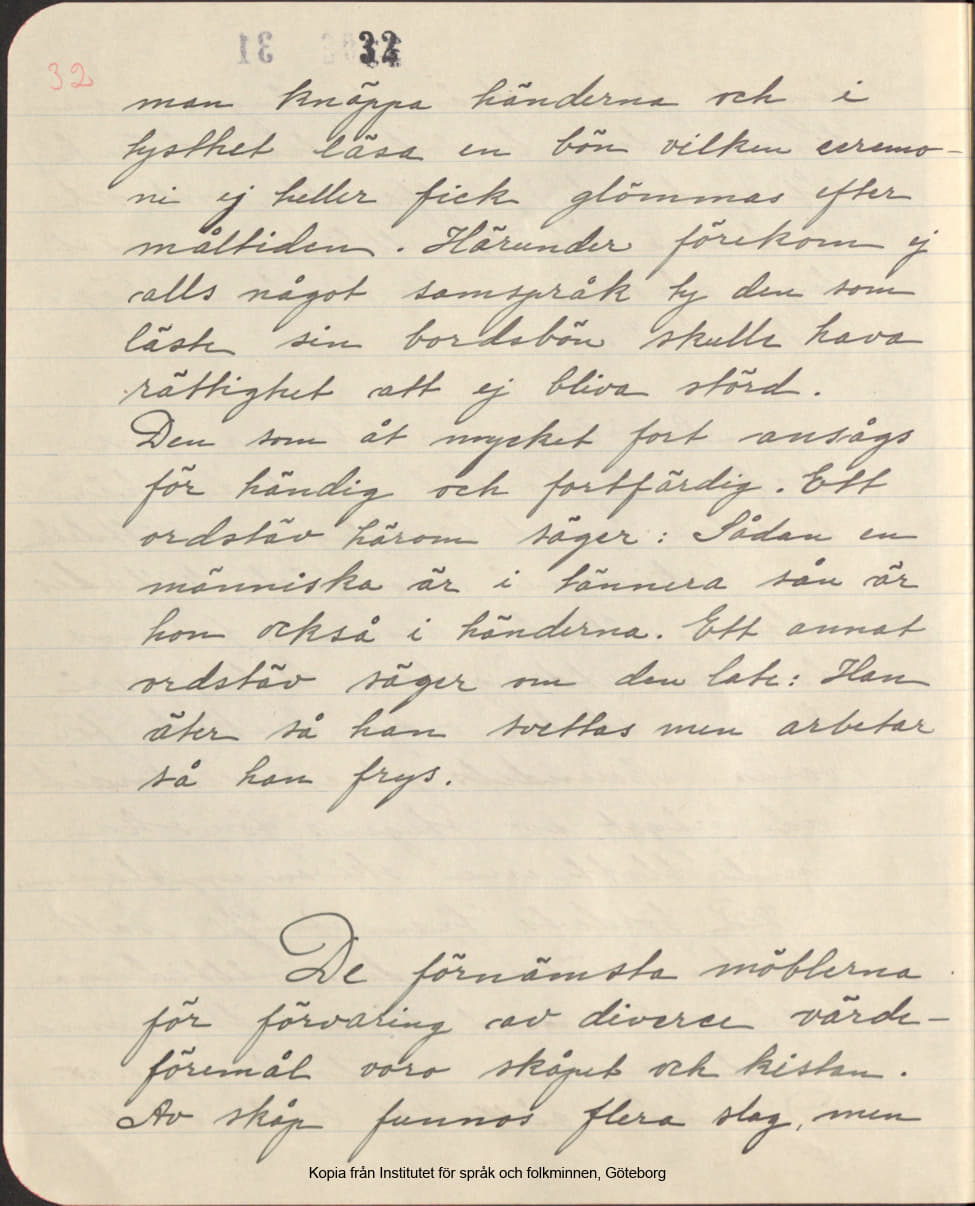 32
32
man knäppa händerna och i
tysthet läsa en bön vilken ceremo-
ni ej heller fick glömmas efter
måltiden. Härunder förekom ej
alls något samspråk ty den som
läste sin bordsbön skulle hava
rättighet att ej bliva störd.
Den som åt mycket fort ansågs
för händig och fortfärdig. Ett
ordstäv härom säger: Sådan en
människa är i tännera sån är
hon också i händerna. Ett annat
ordstäv säger om den late: Han
äter så han svettas men arbetar
så han frys.
De förnämsta möblerna
för förvaring av diverse värde-
föremål voro skåpet och kistan.
Av skåp funnos flera slag, men
Kopia från Institutet för språk och folkminnen, Göteborg